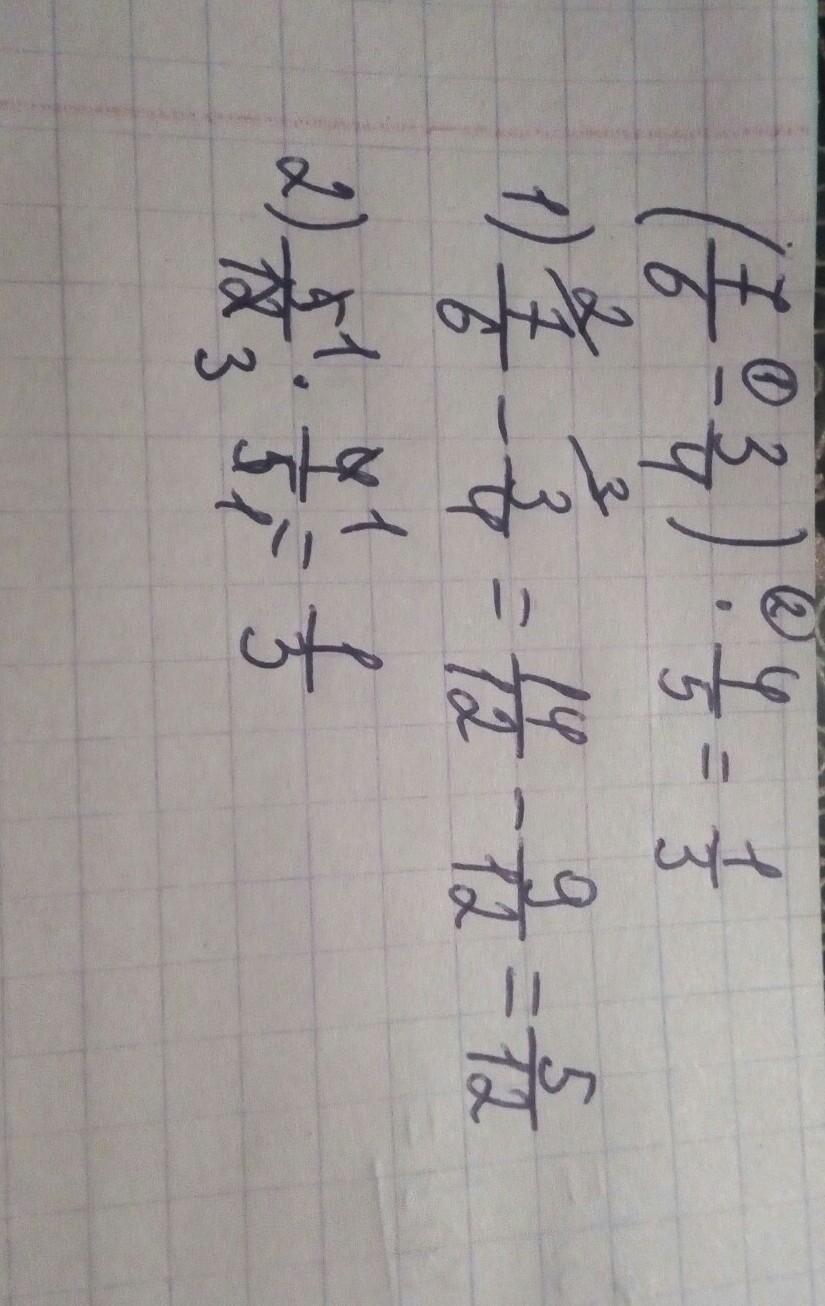 (7/6 ①- 3/4) ②· 4/5 = 1/3
1) 2/ 7/6 - 3/ 3/4 = 14/12 - 9/12 = 5/12
2) 5 1/12 3 · 4 1/5 1 = 1/3